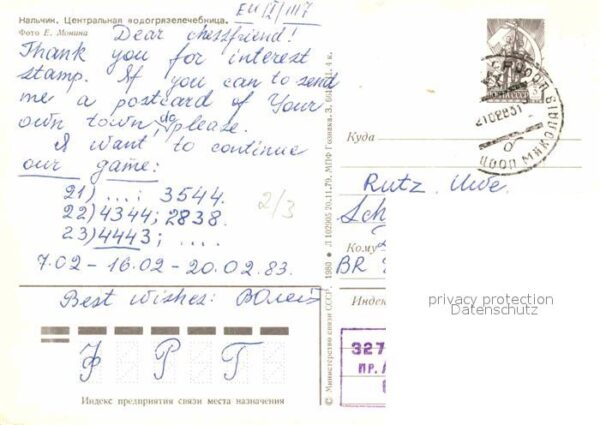 Нальчик. Центральная водогрязелечебница.
Фото Е. Монина
EU/I/1117
Dear chessfriend!
Thank you for interest
stamp. If you can to send
me a postcard of Your
own town, do please.
I want to continue
our game:
21) ... : 3544.
22) 4344; 2838.
23) 4443; ....
2/3
7.02 – 16.02 – 20.02.83.
Best wishes:
Ф Р Г
Индекс предприятия связи места назначения
© Министерство связи СССР. 1980 Л 102905 20.11.79. МПФ Гознака. З.
Куда
Rutz. Uwe.
Sch
Кому
BR
Индекс
privacy protection
Datenschutz
327
ПР.